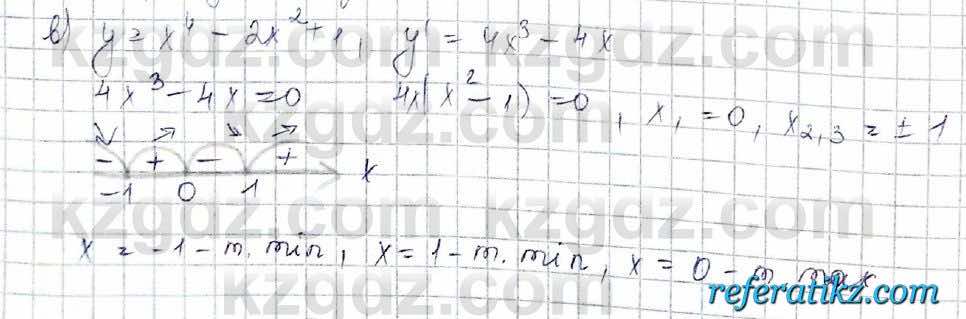 в) y = x⁴ - 2x² + 1, y' = 4x³ - 4x
4x³ - 4x = 0 4x(x² - 1) = 0, x₁ = 0, x₂,₃ = ± 1
↘ ↗ ↘ ↗
- + - + x
-1 0 1
x = -1 - т. min, x = 1 - т. min, x = 0 - т. max
kzgdz.com kzgdz.com
kzgdz.com kzgdz.com
kzgdz.com kzgdz.com
kzgdz.com
referatikz.com